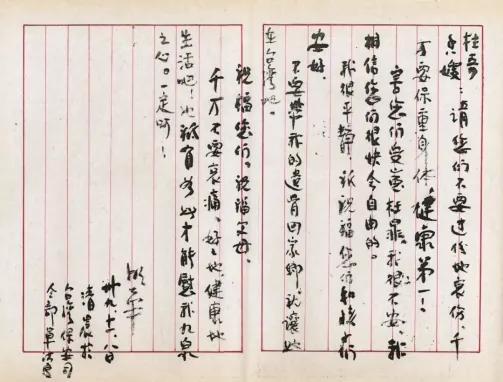 哥
嫂：請您们不要过份地哀伤，千
万要保重身体，健康第一！
害您们受這枉罪，我很不安，我
相信您们很快会自由的。
我很平靜，我祝福您们和孩子们
安好。
不要带我的遺骨回家鄉，就讓她
在台湾吧。
祝福您们。祝福家母。
千万不要哀痛，好好地，健康地
生活吧！也祇有如此才能慰我九泉
之心。一定呵！
卅九、十一、八日
清晨於
台湾保安司
令部軍法處